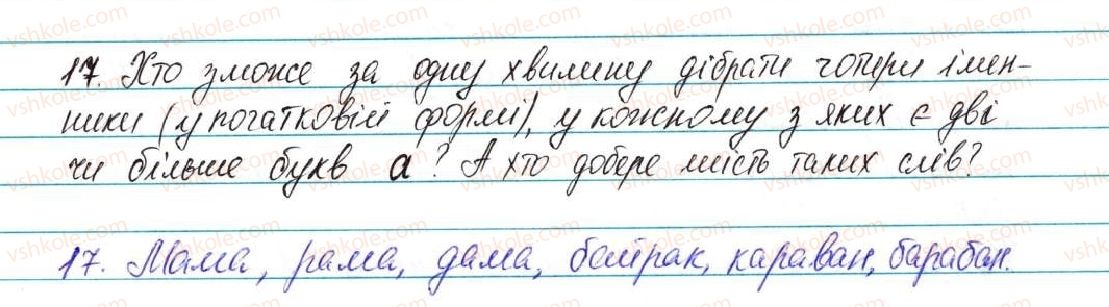 17. Хто зможе за одну хвилину дібрати чотири імен-
ники (у початковій формі), у кожному з яких є дві
чи більше букв а? А хто добере шість таких слів?
17. Мама, рама, дама, байрак, караван, барабан.